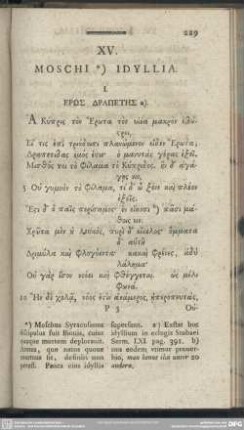 229
XV.
MOSCHI *) IDYLLIA.
I.
ΕΡΩΣ ΔΡΑΠΕΤΗΣ a).
Α Κύπρις τὸν Ἔρωτα τὸν υἱέα μακρὸν ἐβώ-
στρει,
Εἴ τις ἐνὶ τριόδοισι πλανώμενον εἶδεν Ἔρωτα,
Δραπετίδας ἐμός ἐστιν· ὁ μανυτὰς γέρας ἑξεῖ.
Μισθός τοι τὸ φίλαμα τὸ Κύπριδος· ἢν δ' ἀγά-
γῃς νιν,
5 Οὐ γυμνὸν τὸ φίλαμα, τὺ δ' ὦ ξένε καὶ πλέον
ἑξεῖς.
Ἔστι δ' ὁ παῖς περίσαμος· ἐν εἴκοσι πᾶσι μά-
θοις νιν.
Χρῶτα μὲν οὐ λευκὸς, πυρὶ δ' εἴκελος· ὄμματα
δ' αὐτῶ
Δριμύλα καὶ φλογόεντα· κακαὶ φρένες, ἁδὺ
λάλαμα·
Οὐ γὰρ ἴσον νοέει καὶ φθέγγεται· ὡς μέλι
φωνά.
10 Ἢν δὲ χολᾷ, νόος ἐστὶν ἀνάμερος, ἠπεροπευτὰς,
P 3 Οὐ-
*) Moschus Syracusanus
discipulus fuit Bionis, cuius
mortem deploravit.
quam natus quoue
mortuus sit, definiri non
potest. Pauca eius idyllia
supersunt. a) Exstat hoc
idyllium in eclogis Stobaei
Serm. LXI pag. 391. b)